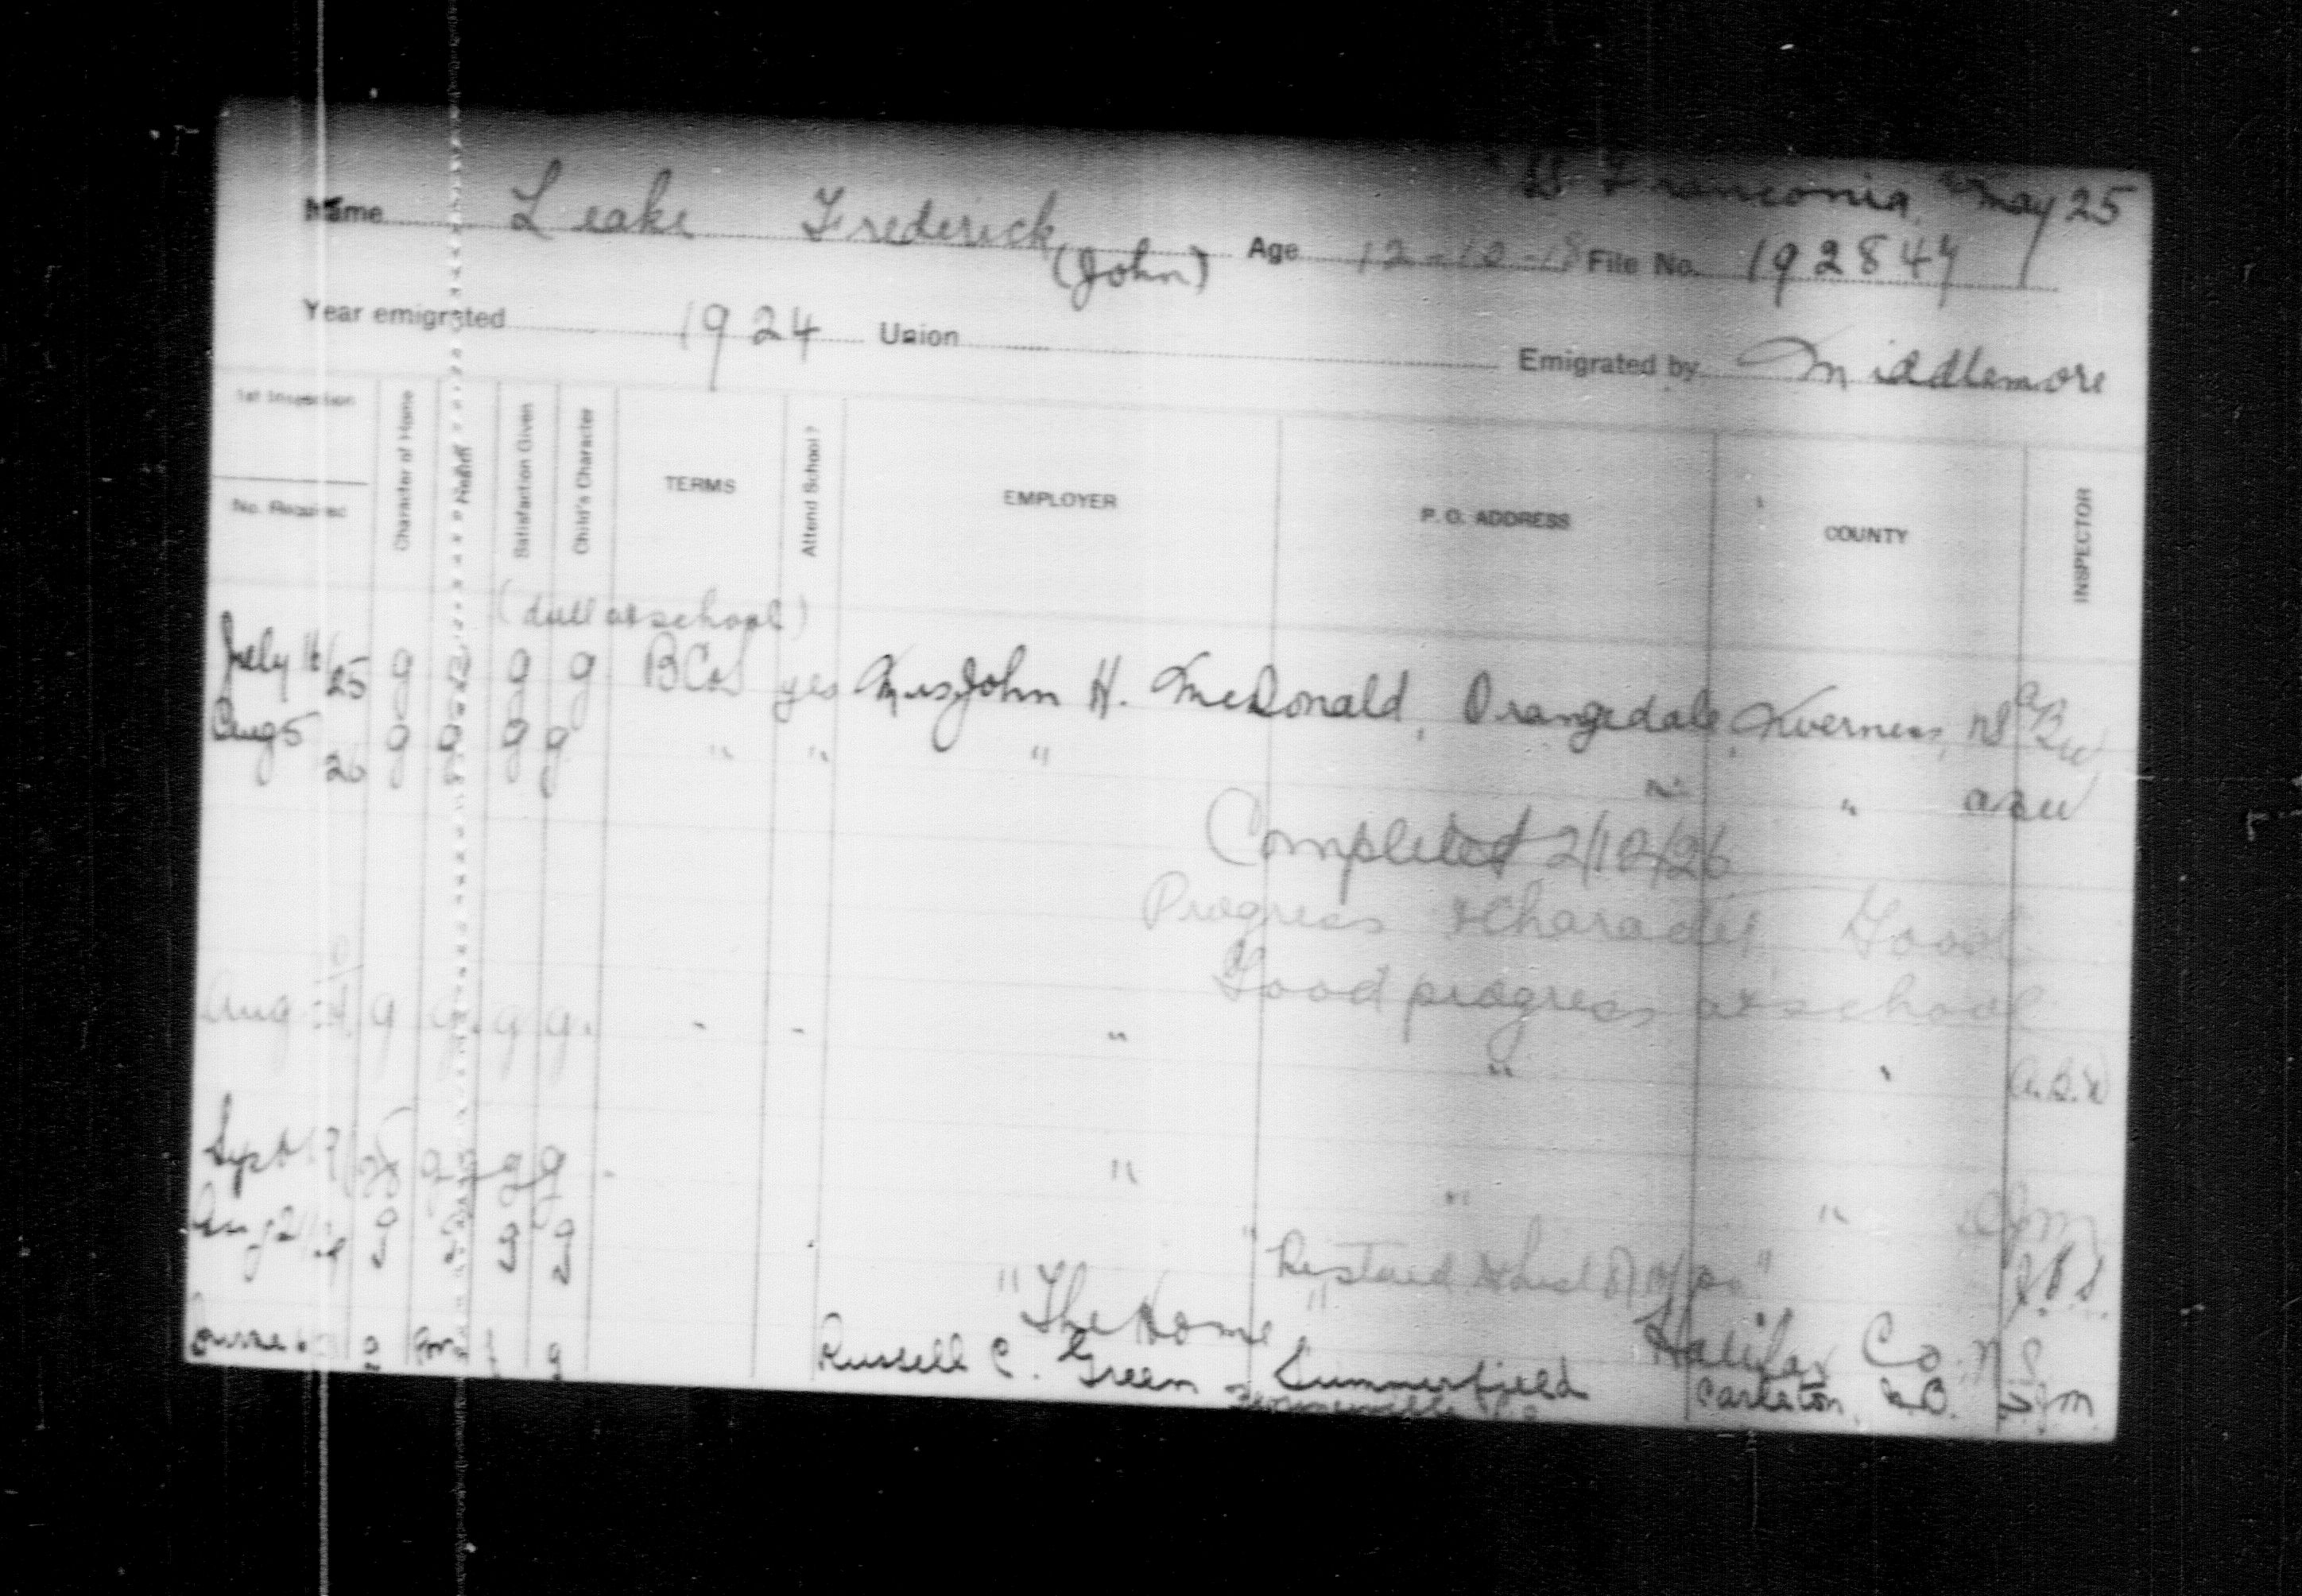 Franconia, May 25
Name Leake Frederick (John) Age 12-10-18 File No. 192847
Year emigrated 1924 Union Emigrated by Middlemore
1st Inspection
No. Required
Character of Home
Health
Satisfaction Given
Child's Character
TERMS
Attend School?
EMPLOYER
P. O. ADDRESS
COUNTY
INSPECTOR
(dull at school)
July 16/25 g g g g yes Mrs John H. McDonald, Orangedale, Inverness, NS
Aug 5 26 g g g g " " " " "
Completed 2/12/26
Progress & Character Good
Good progress at school
Aug g g g g. - - " " " A.B.W
Sept g g g " " "
Aug 21 g g g
"The Home" Halifax Co. N S
g g Russell C. Green Summerfield Carleton, N.B.